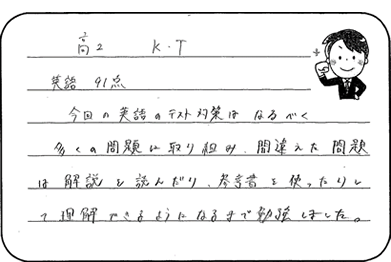 高2 K.T
英語 91点
今回の英語のテスト対策は なるべく
多くの問題に取り組み、間違えた問題
は 解説を読んだり、参考書を使ったりし
て理解できるようになるまで勉強しました。